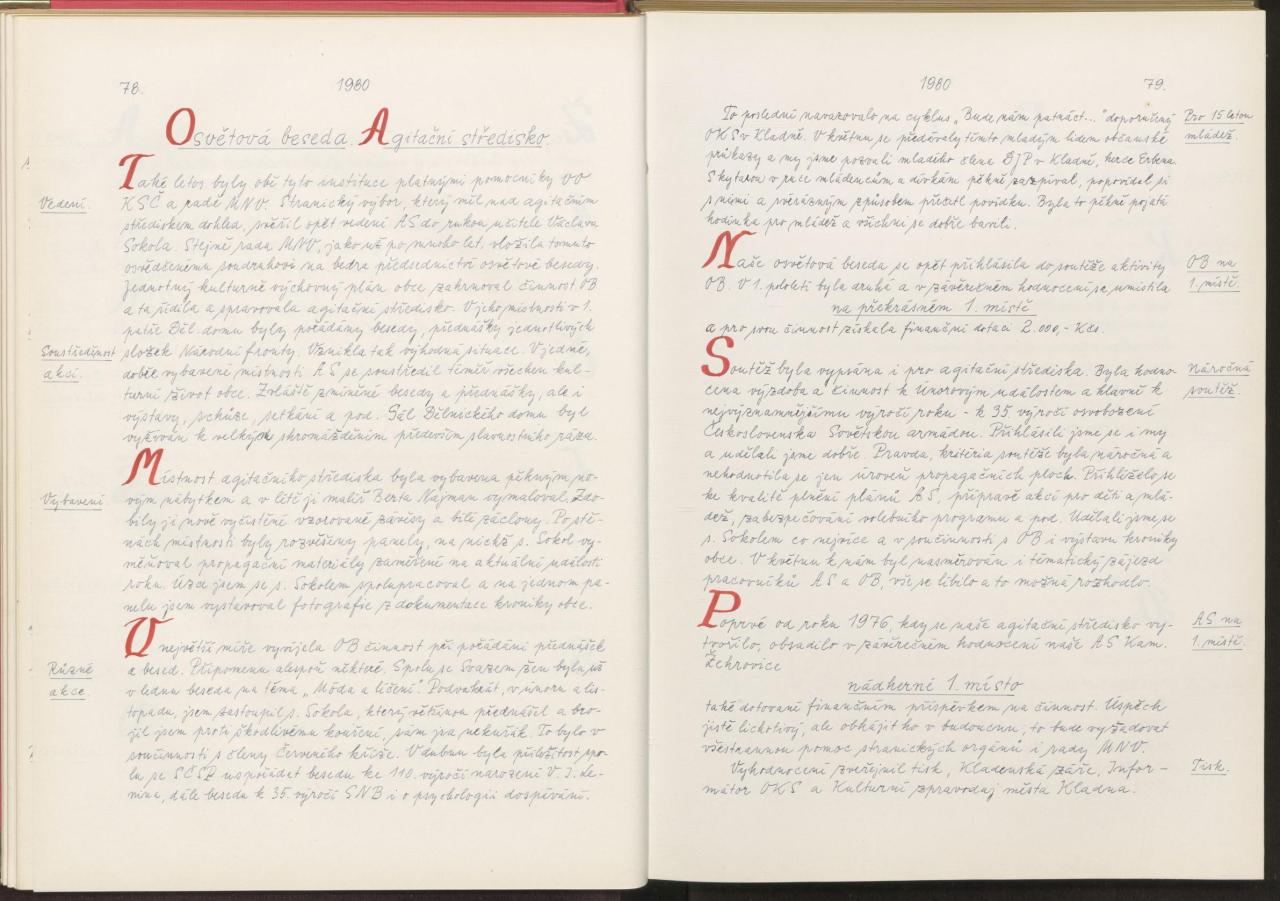 78.
1980
Osvětová beseda. Agitační středisko.
Také letos byly obě tyto instituce platnými pomocníky VV
Vedení.
KSČ a radě MNV. Stranický výbor, který měl nad agitačním
střediskem dohled, svěřil opět vedení AS do rukou učitele Václava
Sokola. Stejně rada MNV, jako už po mnoho let, vložila tomuto
osvědčenému soudruhovi na bedra předsednictví osvětové besedy.
Jednotný kulturně výchovný plán obce zahrnoval činnost OB
a ta řídila a spravovala agitační středisko. V jeho místnosti v 1.
patře Děl. domu byly pořádány besedy, přednášky jednotlivých
Soustředěnost
složek Národní fronty. Vznikla tak výhodná situace. V jedné,
akcí.
dobře vybavené místnosti AS se soustředil téměř všechen kul-
turní život obce. Zvláště zmíněné besedy a přednášky, ale i
výstavy, schůze, setkání a pod. Sál Dělnického domu byl
využíván k velkým shromážděním především slavnostního rázu.
Místnost agitačního střediska byla vybavena pěkným no-
Vybavení.
vým nábytkem a v létě ji malíř Berta Najman vymaloval. Zdo-
bily ji nově vyčištěné vzorované závěsy a bílé záclony. Po stě-
nách místnosti byly rozvěšeny panely, na nichž s. Sokol vy-
měňoval propagační materiály zaměřené na aktuální události
roku. Úzce jsem se s. Sokolem spolupracoval a na jednom pa-
nelu jsem vystavoval fotografie z dokumentace kroniky obce.
V největší míře vyvíjela OB činnost při pořádání přednášek
Různé
a besed. Připomenu alespoň některé. Spolu se Svazem žen byla už
akce.
v lednu beseda na téma „Móda a líčení“. Podvakrát, v únoru a lis-
topadu, jsem zastoupil s. Sokola, který většinou přednášel a bro-
jil jsem proti škodlivému kouření, sám jsa nekuřák. To bylo v
součinnosti s členy Červeného kříže. V dubnu byla příležitost spo-
lu se SČSP uspořádat besedu ke 110. výročí narození V. I. Le-
nina, dále besedu k 35. výročí SNB i o psychologii dospívání.
1980
79.
To poslední navazovalo na cyklus „Bude nám patnáct...“ doporučený
Pro 15 letou
OKS v Kladně. V květnu se předávaly těmto mladým lidem občanské
mládež.
průkazy a my jsme pozvali mladého člena DJP v Kladně, herce Erbena.
S kytarou v ruce mládencům a dívkám pěkně zazpíval, popovídal si
s námi a svérázným způsobem přečetl povídku. Byla to pěkně pojatá
hodinka pro mládež a všichni se dobře bavili.
Naše osvětová beseda se opět přihlásila do soutěže aktivity
OB na
OB. V 1. pololetí byla druhá a v závěrečném hodnocení se umístila
1. místě.
na překrásném 1. místě
a pro svou činnost získala finanční dotaci 2.000,- Kčs.
Soutěž byla vypsána i pro agitační střediska. Byla hodno-
Náročná
cena výzdoba a činnost k Únorovým událostem a hlavně k
soutěž.
nejvýznamnějšímu výročí roku - k 35. výročí osvobození
Československa Sovětskou armádou. Přihlásili jsme se i my
a udělali jsme dobře. Pravda, kritéria soutěže byla náročná a
nehodnotila se jen úroveň propagačních ploch. Přihlíželo se
ke kvalitě plnění plánů AS, přípravě akcí pro děti a mlá-
dež, zabezpečování volebního programu a pod. Udělali jsme se
s. Sokolem co nejvíce a v součinnosti s OB i výstavu kroniky
obce. V květnu k nám byl nasměrován i tématický zájezd
pracovníků AS a OB, vše se líbilo a to možná rozhodlo.
Poprvé od roku 1976, kdy se naše agitační středisko vy-
AS na
tvořilo, obsadilo v závěrečném hodnocení naše AS Kam.
1. místě.
Žehrovice
nádherné 1. místo
také dotované finančním příspěvkem na činnost. Úspěch
jistě lichotivý, ale obhájit ho v budoucnu, to bude vyžadovat
všestrannou pomoc stranických orgánů i rady MNV.
Vyhodnocení zveřejnil tisk, Kladenská záře, Infor-
Tisk.
mátor OKS a Kulturní zpravodaj města Kladna.